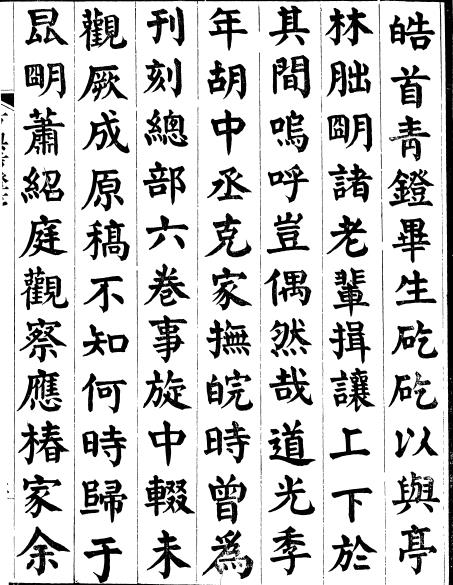 皓首青鐙畢生矻矻以與亭
林朏朙諸老輩揖讓上下於
其間嗚呼豈偶然哉道光季
年胡中丞克家撫皖時曾爲
刊刻總部六卷事旋中輟未
觀厥成原稿不知何時歸于
昆朙蕭紹庭觀察應椿家余